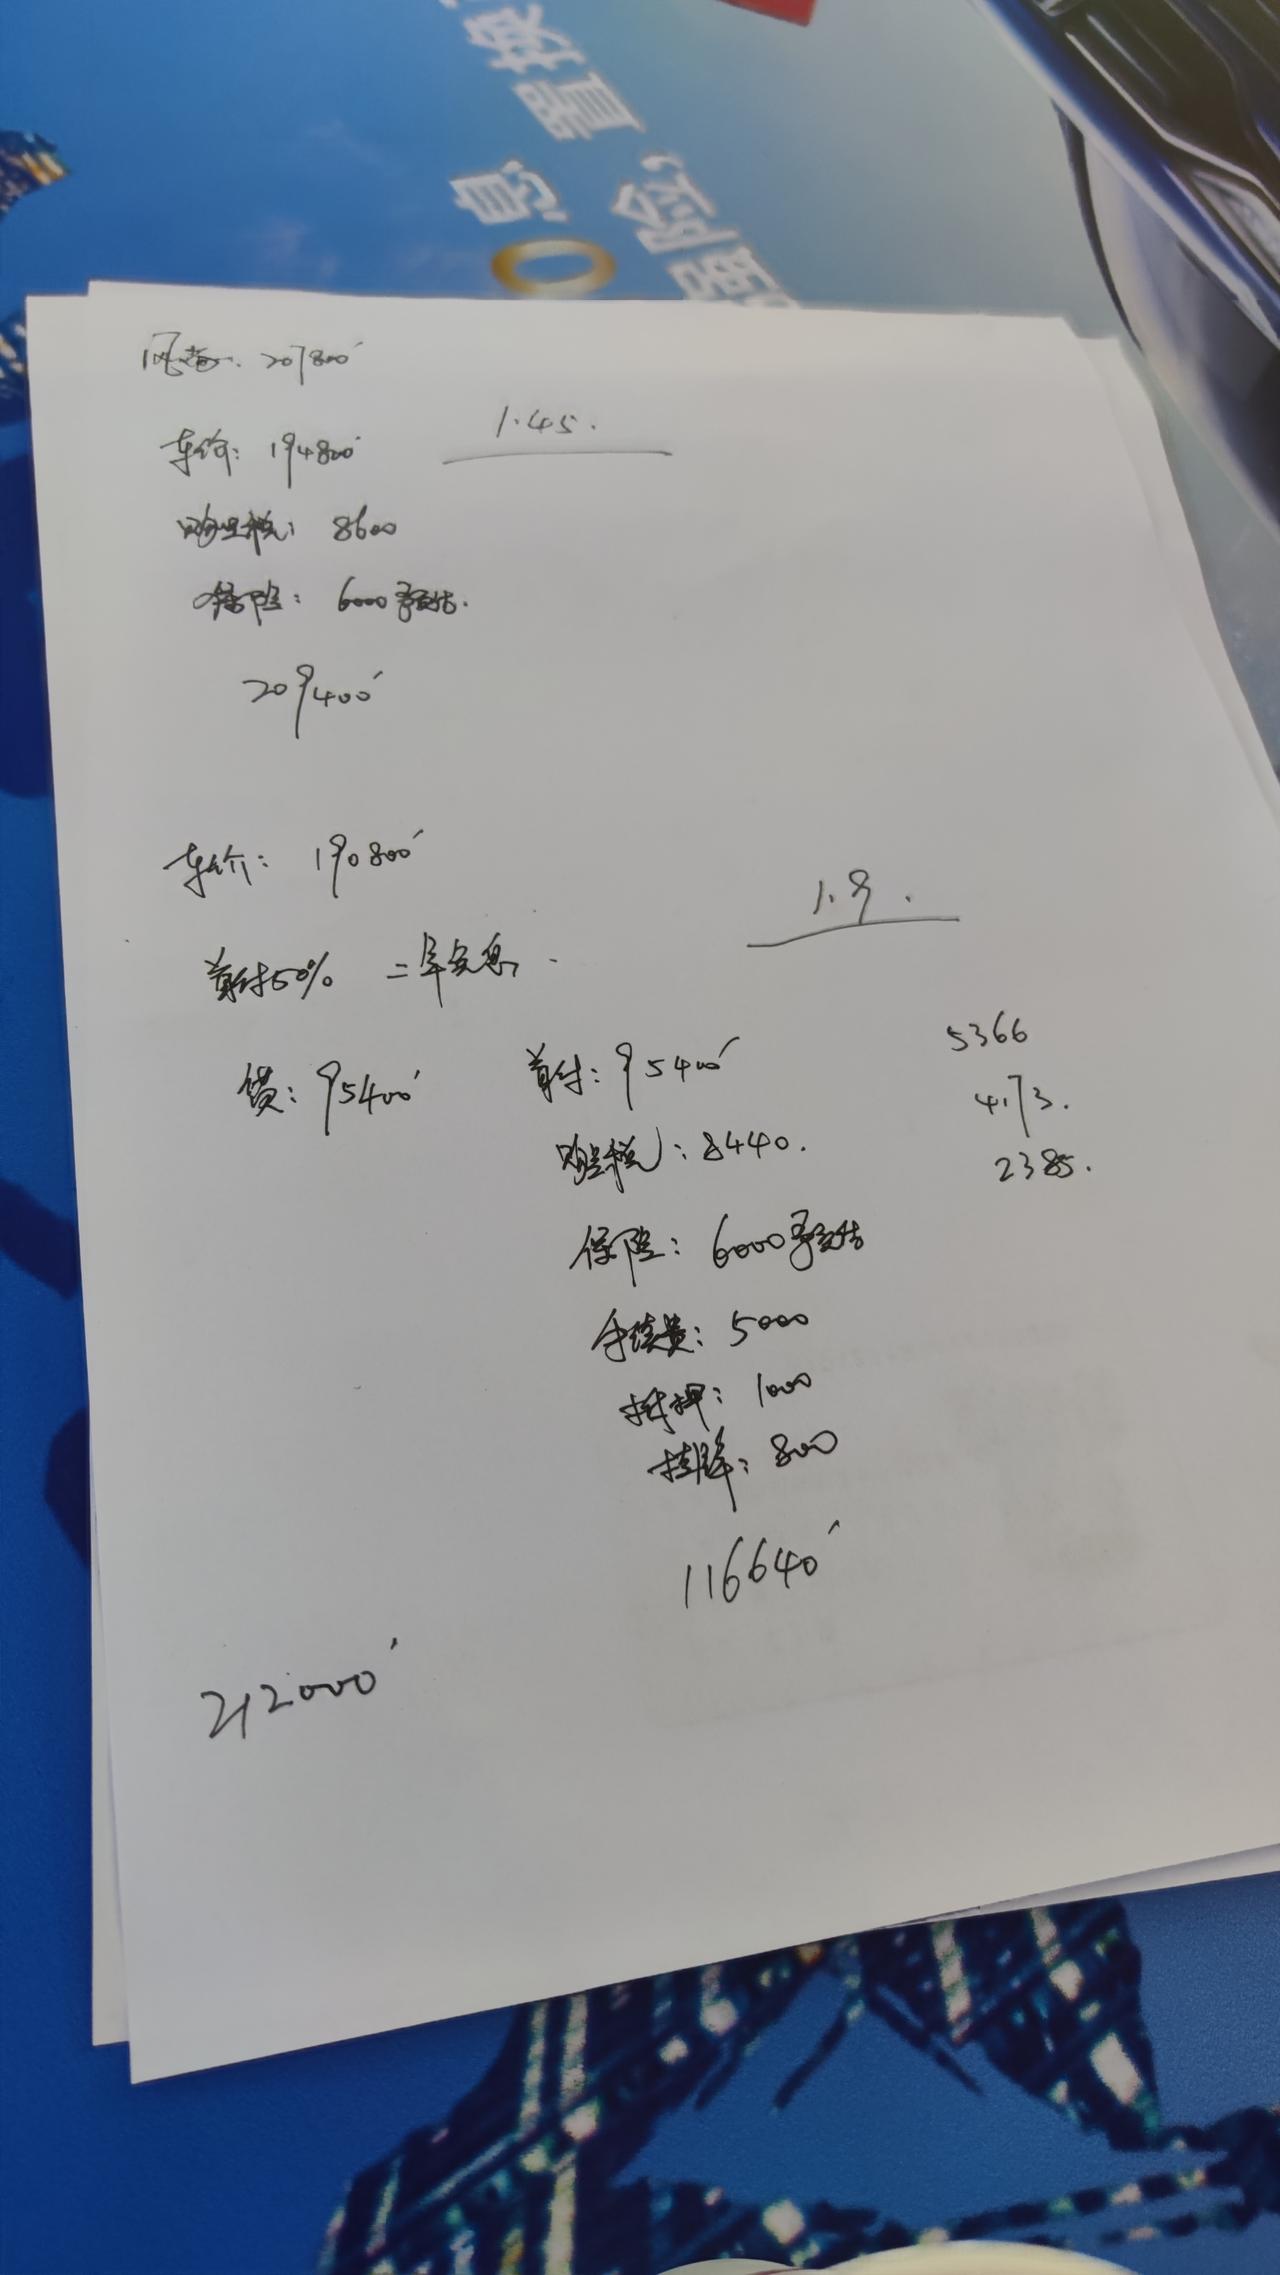 置换
息
险,
0
207800
车价: 194800
1.45.
购置税: 8600
保险: 6000预估.
209400
车价: 190800
1.9.
首付50% 二年免息.
贷: 95400 首付: 95400 5366
购置税: 8440. 4173.
2385.
保险: 6000预估
手续费: 5000
抵押: 1000
挂牌: 800
116640
212000